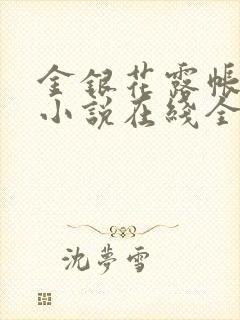 金銀花露帳
小説在綫全
沈夢雪